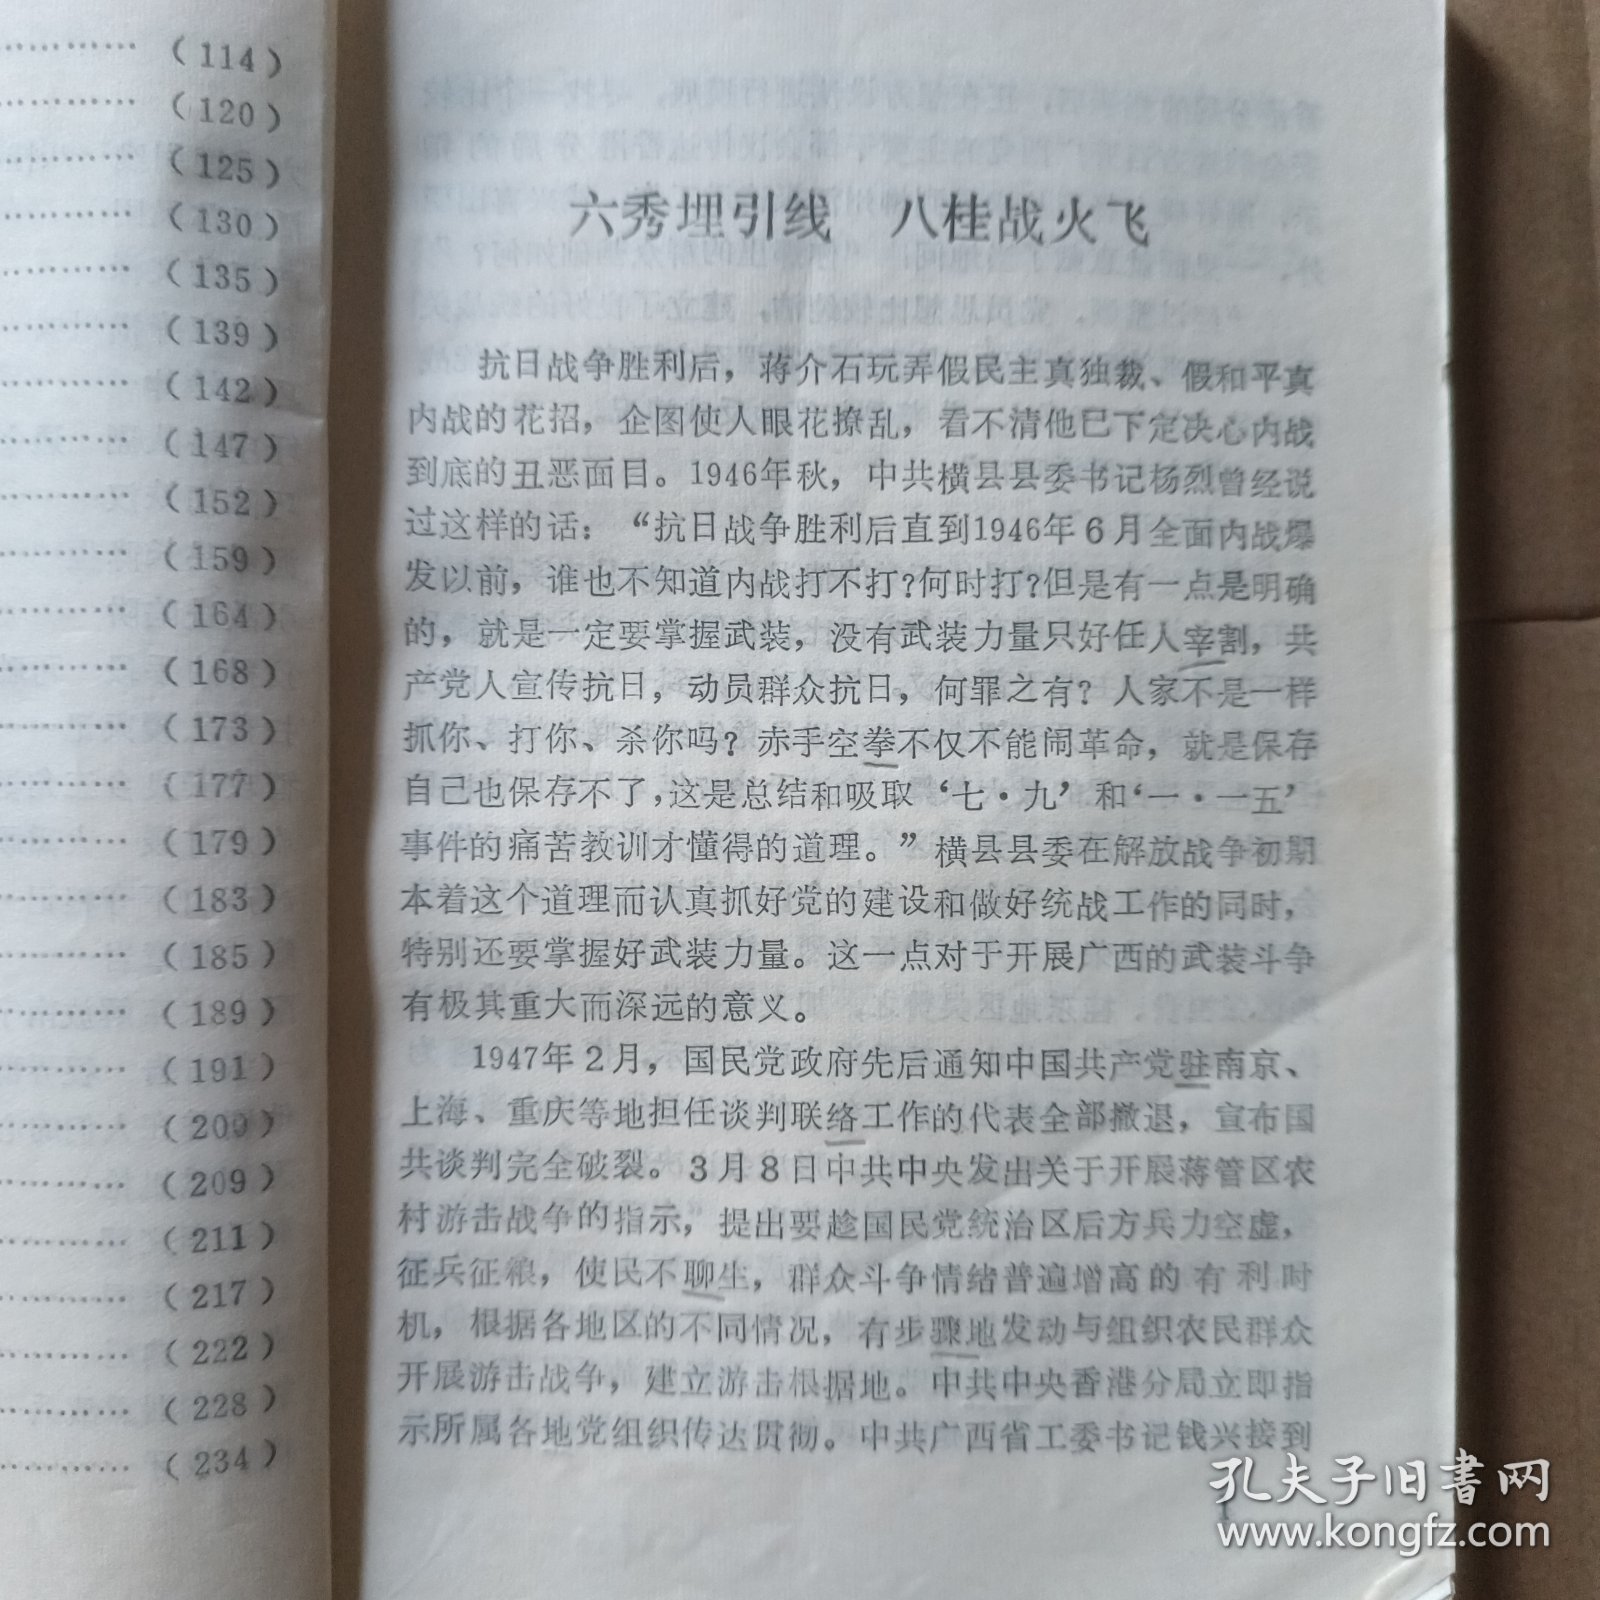 ………… (114)
………… (120)
………… (125)
………… (130)
………… (135)
………… (139)
………… (142)
………… (147)
………… (152)
………… (159)
………… (164)
………… (168)
………… (173)
………… (177)
………… (179)
………… (183)
………… (185)
………… (189)
………… (191)
………… (200)
………… (209)
………… (211)
………… (217)
………… (222)
………… (228)
………… (234)
六秀埋引线　八桂战火飞
抗日战争胜利后，蒋介石玩弄假民主真独裁、假和平真
内战的花招，企图使人眼花撩乱，看不清他巳下定决心内战
到底的丑恶面目。1946年秋，中共横县县委书记杨烈曾经说
过这样的话：“抗日战争胜利后直到1946年6月全面内战爆
发以前，谁也不知道内战打不打?何时打?但是有一点是明确
的，就是一定要掌握武装，没有武装力量只好任人宰割，共
产党人宣传抗日，动员群众抗日，何罪之有？人家不是一样
抓你、打你、杀你吗？赤手空拳不仅不能闹革命，就是保存
自己也保存不了，这是总结和吸取‘七·九’和‘一·一五’
事件的痛苦教训才懂得的道理。”横县县委在解放战争初期
本着这个道理而认真抓好党的建设和做好统战工作的同时，
特别还要掌握好武装力量。这一点对于开展广西的武装斗争
有极其重大而深远的意义。
1947年2月，国民党政府先后通知中国共产党驻南京、
上海、重庆等地担任谈判联络工作的代表全部撤退，宣布国
共谈判完全破裂。3月8日中共中央发出关于开展蒋管区农
村游击战争的指示，提出要趁国民党统治区后方兵力空虚，
征兵征粮，使民不聊生，群众斗争情绪普遍增高的有利时
机，根据各地区的不同情况，有步骤地发动与组织农民群众
开展游击战争，建立游击根据地。中共中央香港分局立即指
示所属各地党组织传达贯彻。中共广西省工委书记钱兴接到
1
孔夫子旧书网
www.kongfz.com